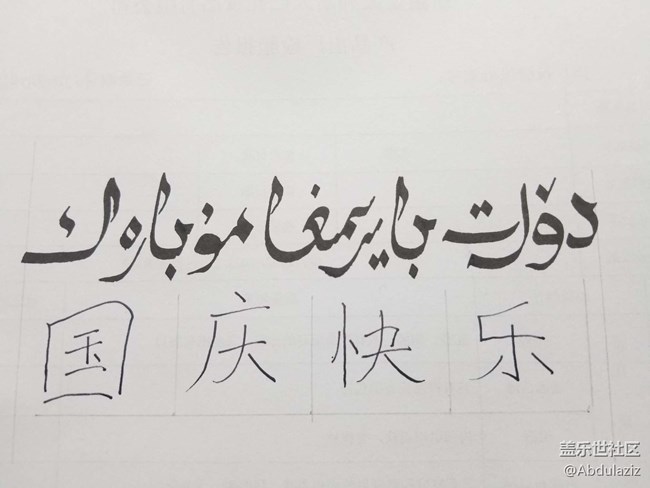 دۆلەت بايرىمىغا مۇبارەك
国庆快乐
盖乐世社区
@Abdulaziz